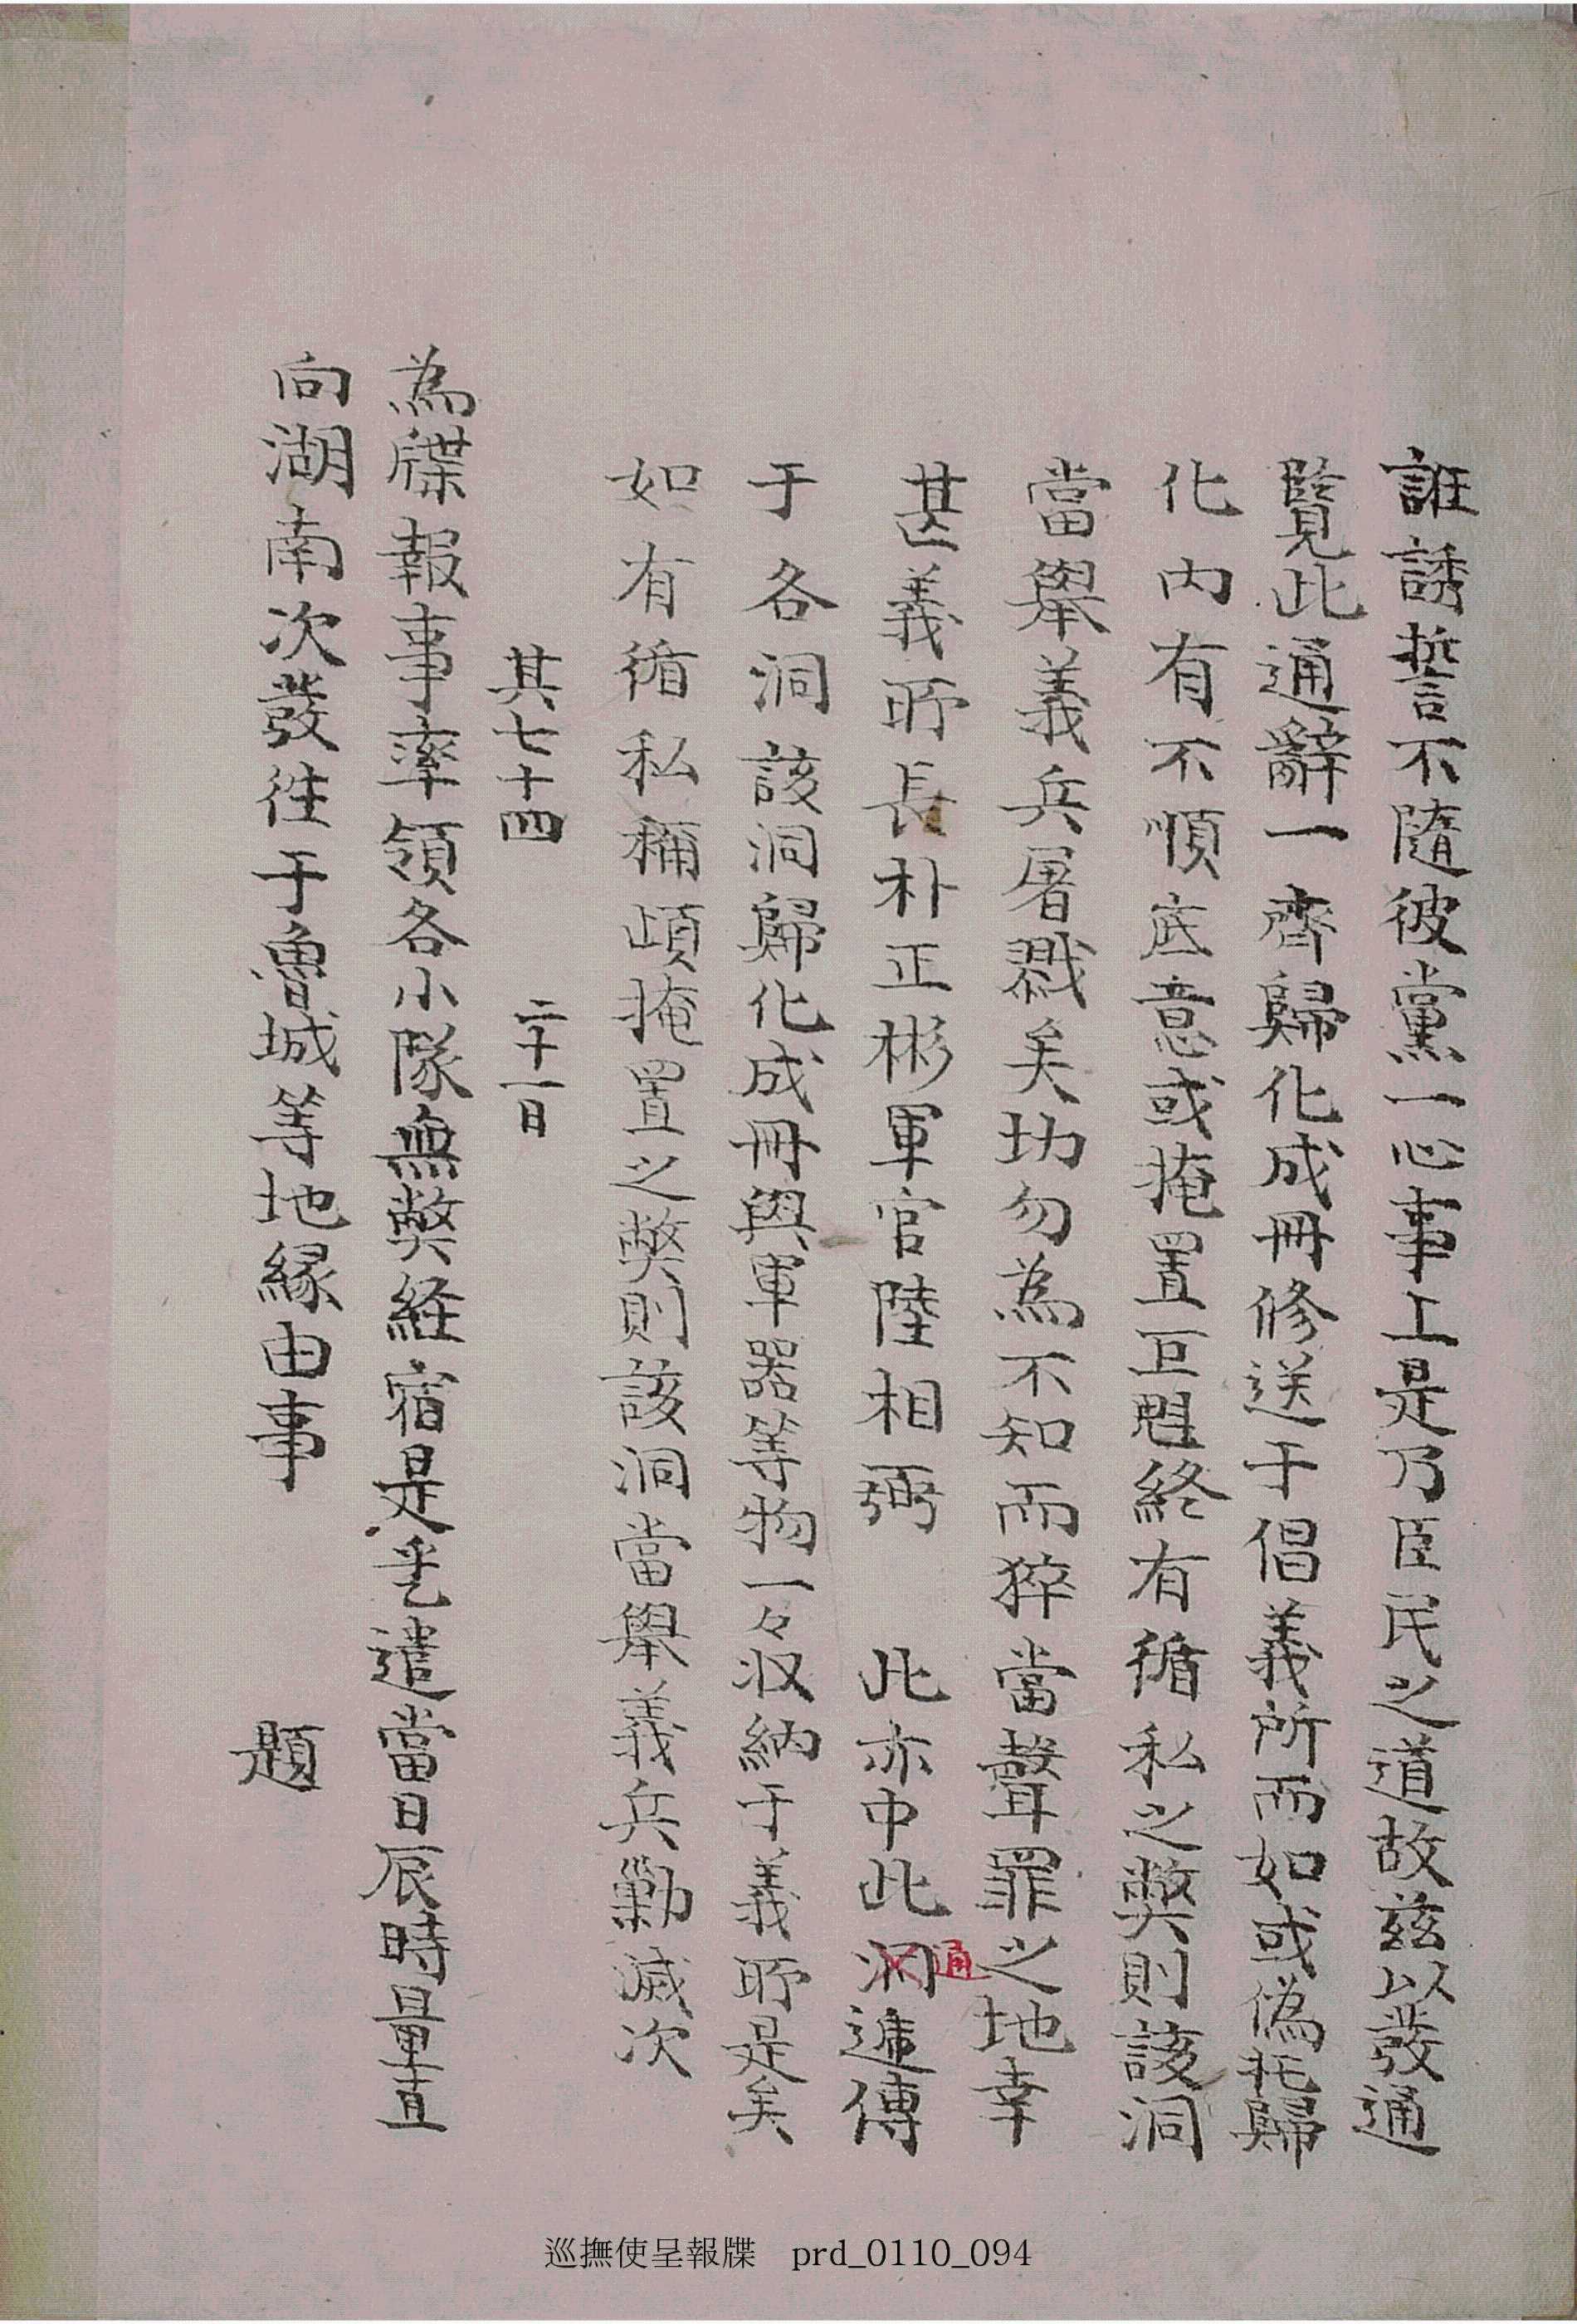 誑誘誓不隨彼黨一心事上是乃臣民之道故玆以發通
覽此通辭一齊歸化成冊修送于倡義所而如或僞托歸
化內有不順底意或掩置巨魁終有循私之弊則該洞
當擧義兵屠戮矣切勿爲不知而猝當聲罪之地幸
甚義所長朴正彬軍官陸相弼　此亦中此洞通遞傳
于各洞該洞歸化成冊與軍器等物一々収納于義所是矣
如有循私稱頉掩置之弊則該洞當擧義兵勦滅次
其七十四　二十一日
為牒報事率領各小隊無弊経宿是乎遣當日辰時量直
向湖南次發徃于魯城等地緣由事　題
巡撫使呈報牒　prd_0110_094